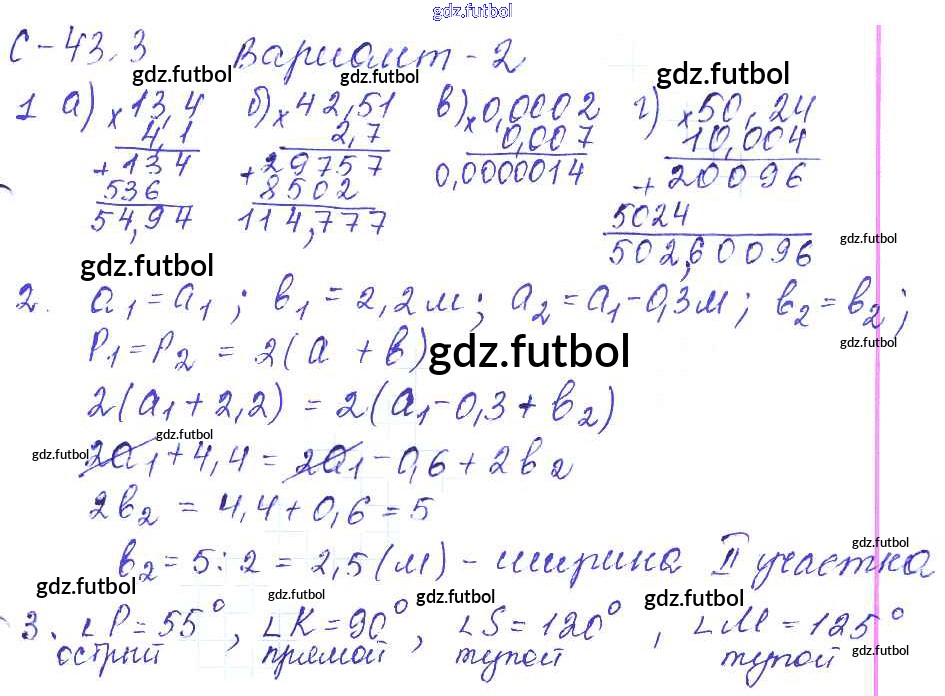 gdz.futbol
С-43.3 Вариант-2
gdz.futbol gdz.futbol gdz.futbol
1 а) × 13,4 б) × 42,51 в) × 0,0002 г) × 50,24
4,1 2,7 0,007 10,004
+ 134 + 29757 0,0000014 + 20096
536 8502 5024
54,97 114,777 502,60096
gdz.futbol
gdz.futbol
2. a₁ = a₁; b₁ = 2,2 м; a₂ = a₁ - 0,3 м; b₂ = b₂;
P₁ = P₂ = 2(a + b) gdz.futbol gdz.futbol
2(a₁ + 2,2) = 2(a₁ - 0,3 + b₂)
gdz.futbol gdz.futbol
2a₁ + 4,4 = 2a₁ - 0,6 + 2b₂
2b₂ = 4,4 + 0,6 = 5
gdz.futbol
b₂ = 5 : 2 = 2,5 (м) - ширина II участка
gdz.futbol gdz.futbol gdz.futbol gdz.futbol
3. ∠P = 55°, ∠K = 90°, ∠S = 120°, ∠M = 125°
острый прямой тупой тупой
gdz.futbol